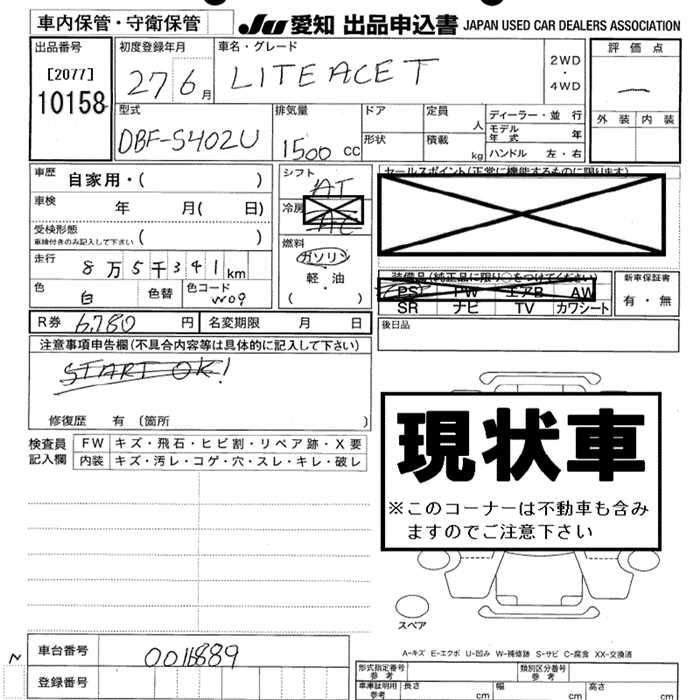 車内保管・守衛保管
JU 愛知 出品申込書 JAPAN USED CAR DEALERS ASSOCIATION
出品番号
[2077]
10158
初度登録年月
27 6月
車名・グレード
LITEACE T
2WD
・
4WD
評価点
―
外装 内装
型式
DBF-S402U
排気量
1500 cc
ドア
形状
定員
人
積載
kg
ディーラー・並行
モデル年式 年
ハンドル 左・右
車歴 自家用・( )
車検 年 月( 日)
受検形態
車検付きのみ記入して下さい ( )
走行 8万5千341km
色 白 色替 色コード W09
R券 6,780 円 名変期限 月 日
シフト
AT
冷房
AC
燃料
ガソリン
軽・油
( )
セールスポイント(正常に機能するものに限ります)
装備品(純正品に限り○をつけてください)
PS PW エアB AW
SR ナビ TV カワシート
新車保証書
有・無
後日品
注意事項申告欄(不具合内容等は具体的に記入して下さい)
START OK!
修復歴 有 (箇所 )
検査員記入欄
FW キズ・飛石・ヒビ割・リペア跡・X要
内装 キズ・汚レ・コゲ・穴・スレ・キレ・破レ
現状車
※このコーナーは不動車も含み
ますのでご注意下さい
スペア
A-キズ E-エクボ U-凹み W-補修跡 S-サビ C-腐食 XX-交換済
N
車台番号 0016889
登録番号
形式指定番号
参考
類別区分番号
参考
車庫証明用
参考
長さ cm 幅 cm 高さ cm